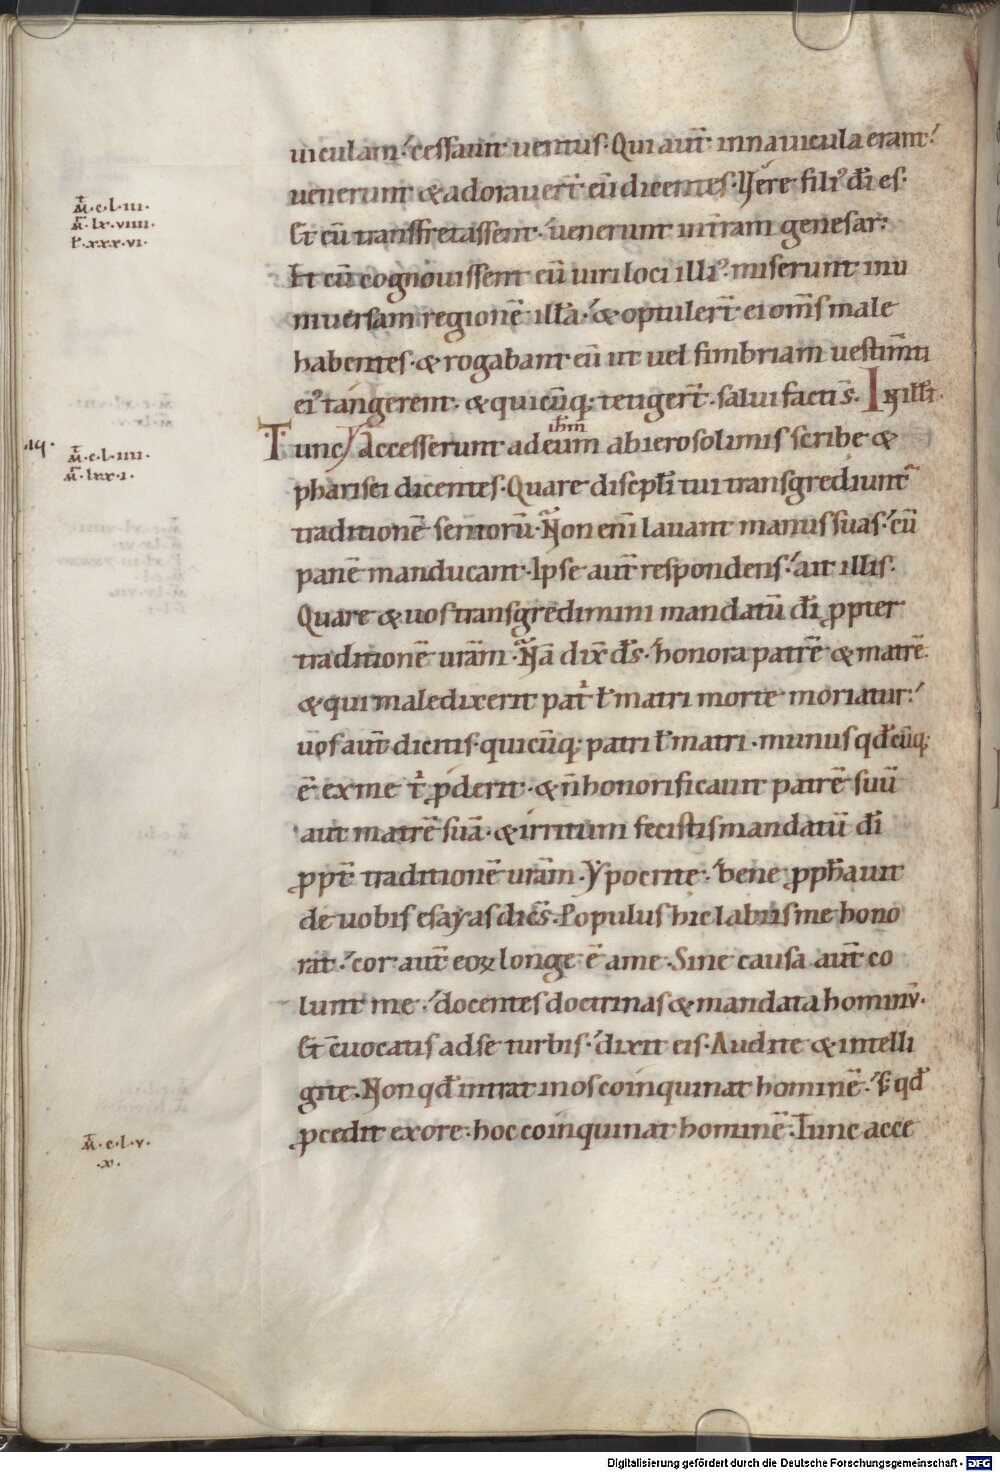 uiculam cessauit uentus. Qui aut̄ in nauicula erant
uenerunt & adorauer̄t eū dicentes. Uere fili᾽ dī es.
Et cū transfretassent uenerunt in t̄ram genesar.
M̄.c.l.iii.
M̄.lx.viiii.
ł.xxx.vi.
Et cū cognouissent eū uiri loci illi᾽ miserunt in u
niuersam regionē illā & optuler̄t ei om̄s male
habentes. & rogabant eū ut uel fimbriam uestim̄ti
ei᾽ tangerent. & quicūq; tetiger̄t. salui facti s̄. In illo t̄.
Tunc Accesserunt ad eum ih̄m ab ierosolimis scribe &
M̄.c.l.iiii.
M̄.lxx.i.
pharisei dicentes. Quare discipl̄i tui transgrediunt᾽
traditionē seniorū. Non eni̅ lauant manus suas cū
panē manducant. Ipse aut̄ respondens ait illis.
Quare & uos transgredimini mandatū dī ꝓpter
traditionē ur̄am. Nā dix̄ ds̄. honora patrē & matrē
& qui maledixerit pat᾽ ł matri morte moriatur.
uos aut̄ dicitis quicūq; patri ł matri. munus qđcūq;
ē ex me t᾽ ꝓderit. & n̄ honorificauit patrē suū
aut matrē suā. & irritum fecistis mandatū dī
ꝓpt̄ traditionē ur̄am. Ypocrite. bene ꝓph̄auit
de uobis esayas dicēs. Populus hic labiis me hono
rat cor aut̄ eoꝝ longe ē a me. Sine causa aut̄ co
lunt me docentes doctrinas & mandata hominū.
Et c̄uocatis ad se turbis dixit eis. Audite & intelli
gite. Non qđ intrat in os coinquinat hominē s̄ qđ
ꝓcedit ex ore. hoc coinquinat hominē. Tunc acce
M̄.c.l.v.
.x.
Digitalisierung gefördert durch die Deutsche Forschungsgemeinschaft - DFG